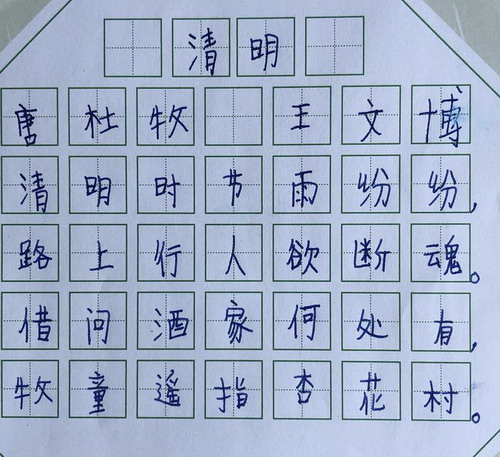 清明
唐杜牧 王文博
清明时节雨纷纷，
路上行人欲断魂。
借问酒家何处有，
牧童遥指杏花村。